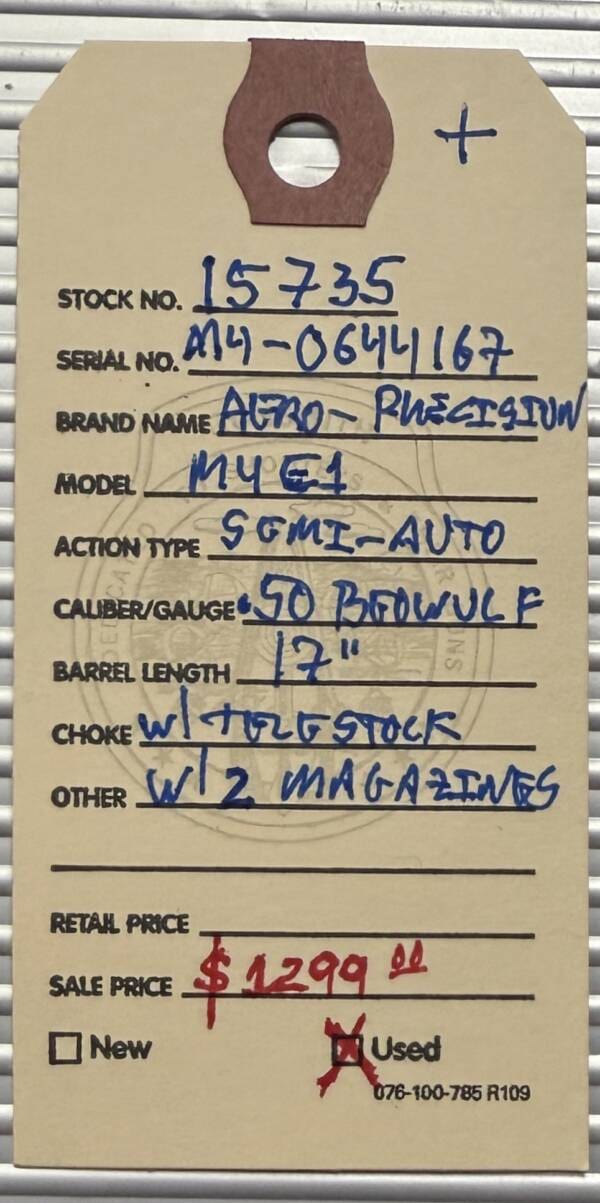 +
STOCK NO. 15735
SERIAL NO. M4-0644167
BRAND NAME AERO-PRECISION
MODEL M4E1
ACTION TYPE SEMI-AUTO
CALIBER/GAUGE .50 BEOWULF
BARREL LENGTH 17"
CHOKE W/ TELESTOCK
OTHER W/2 MAGAZINES
RETAIL PRICE
SALE PRICE $1299 00
New Used
076-100-785 R109